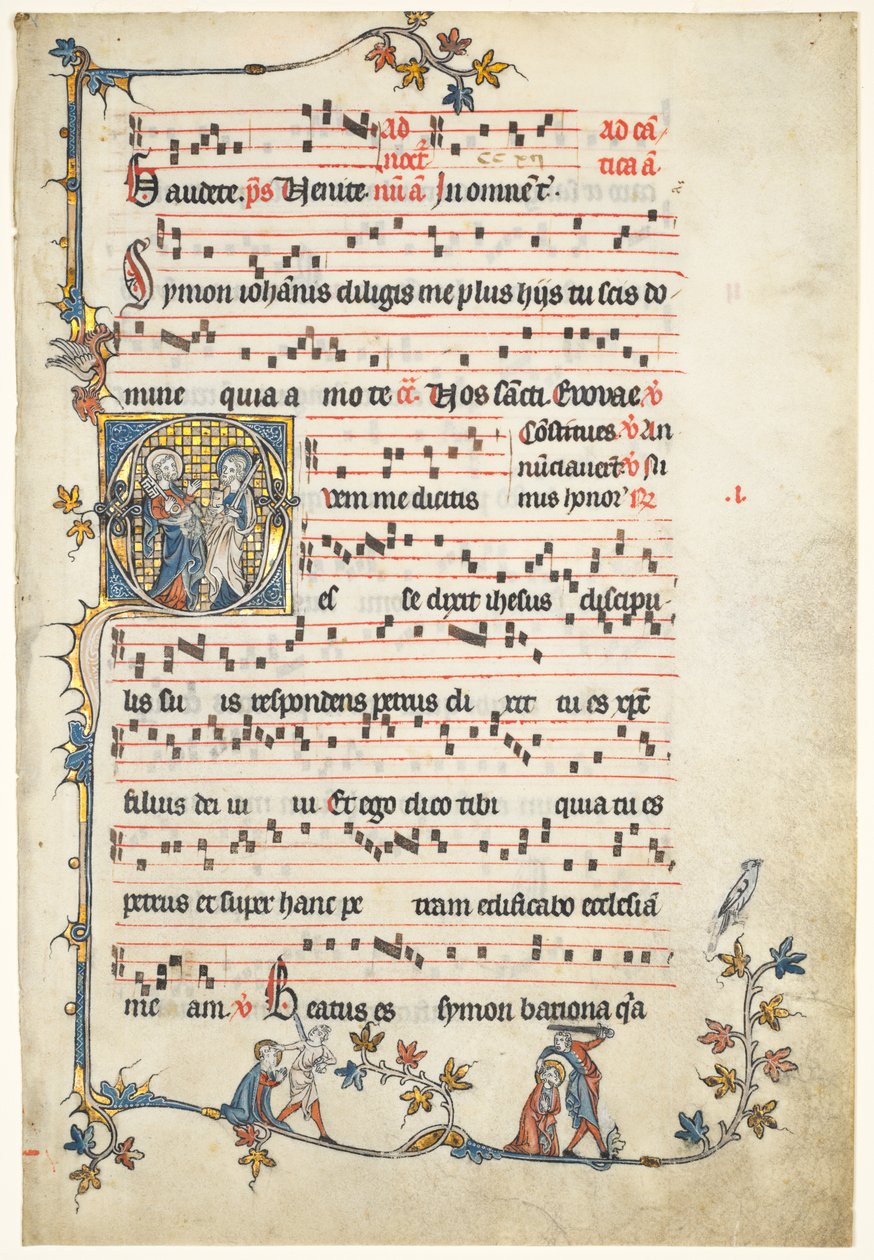 Ad Ad cã
noct̃ CC xij tica ã
Gaudete. p̃s Venite. nũ ã In omnẽ t̃.
Symon ioh̃anis diligis me plus hijs tu scis do
mine quia a mo te c̃ã. Vos sãcti. Evovae. ℣
Cõstitues ℣ An
nũciauert̃ ℣ Ni
QVem me dicitis mus honor᾽ ℟
es se dixit ihesus discipu
.I.
lis su is respondens petrus di xit tu es xp̃c
filius dei ui ui Et ego dico tibi quia tu es
petrus et super hanc pe tram edificabo ecclesiã
me am. ℣ Beatus es symon bariona q̃a